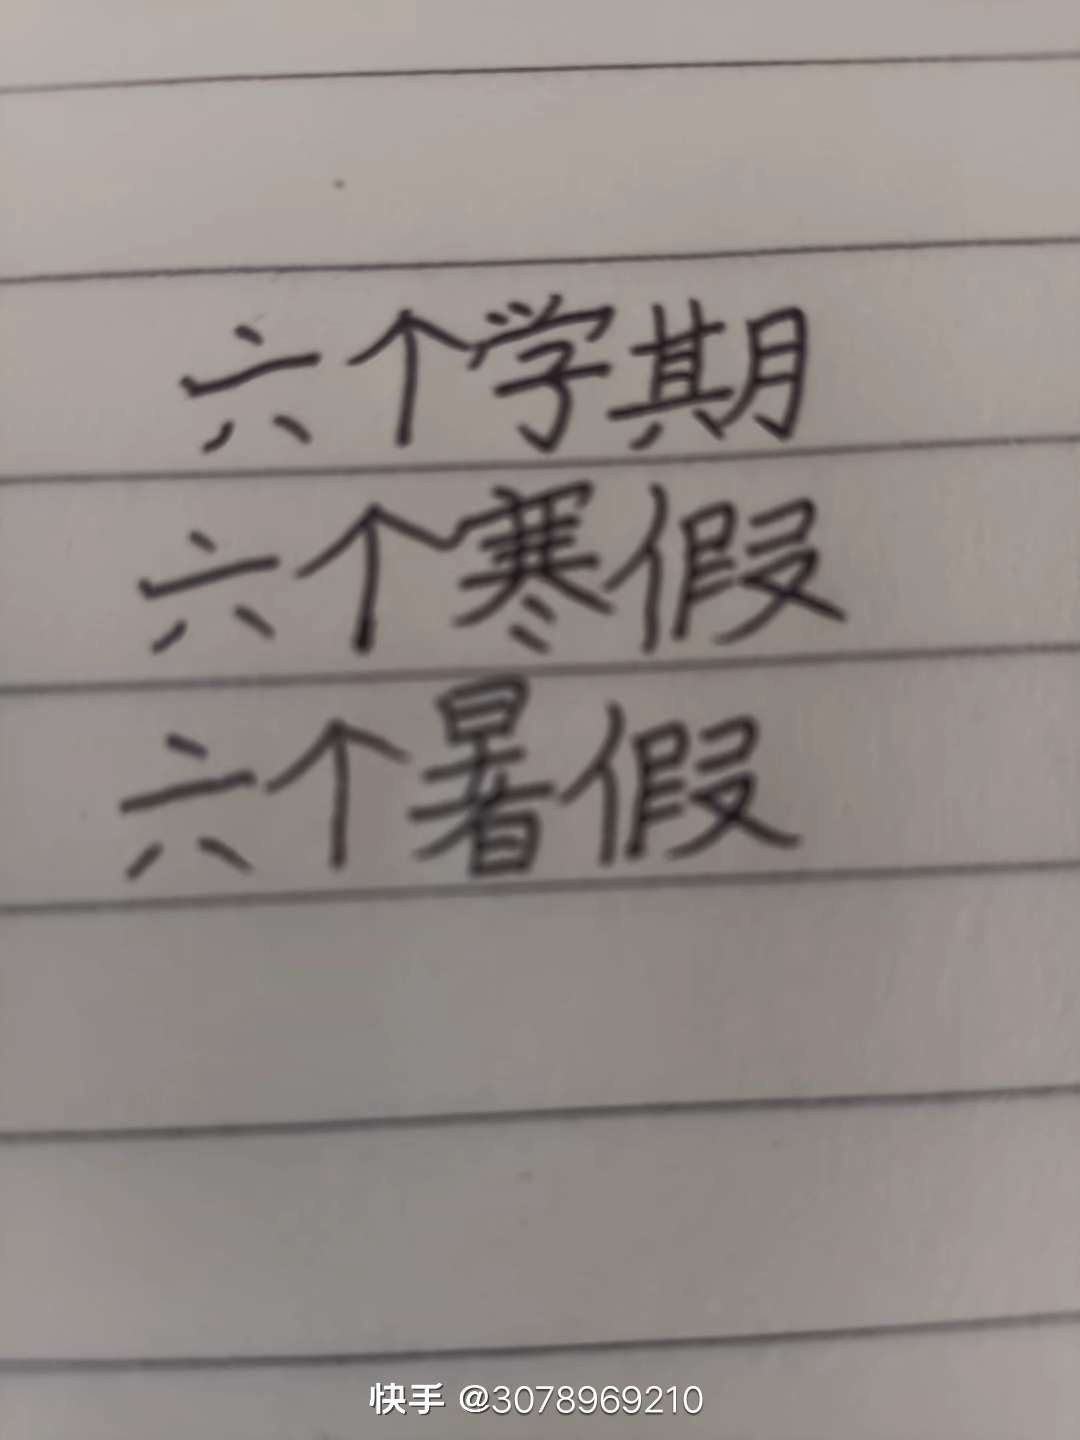 六个学期
六个寒假
六个暑假
快手 @3078969210